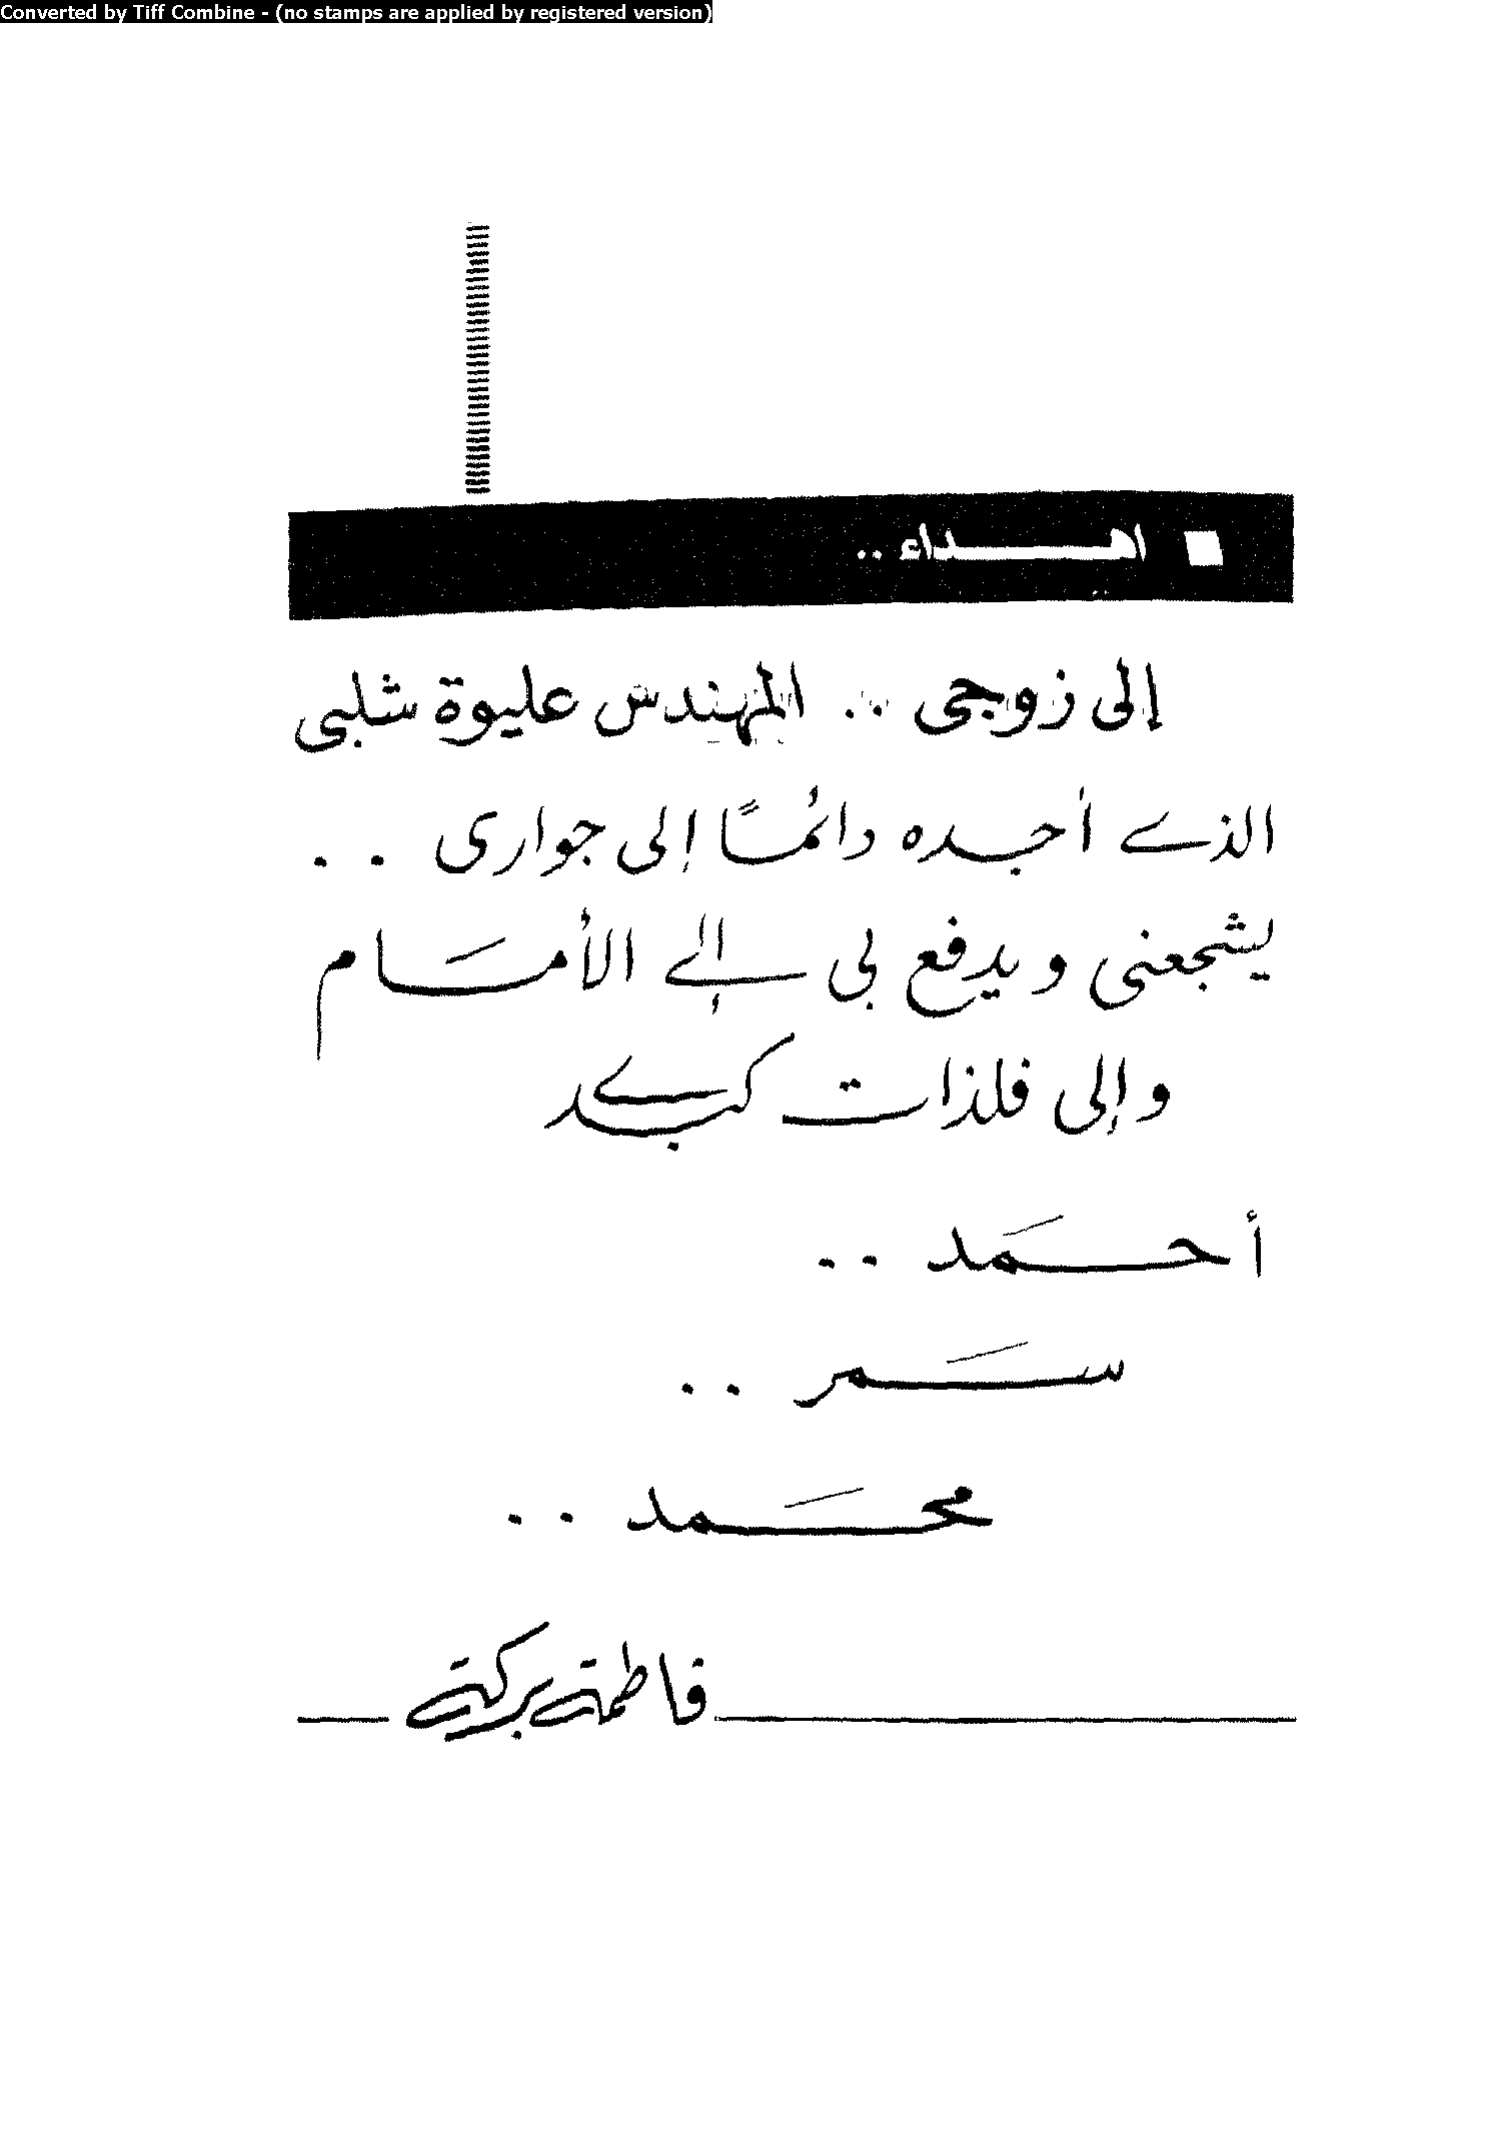 Converted by Tiff Combine - (no stamps are applied by registered version)
اهـــداء ..
إلى زوجى .. المهندس عليوة شلبى
الذى أجده دائمًا إلى جوارى ..
يشجعنى ويدفع بى إلى الأمَام
وإلى فلذات كبدى
أحمَد ..
سَمر ..
محمَد ..
فاطمة بركة